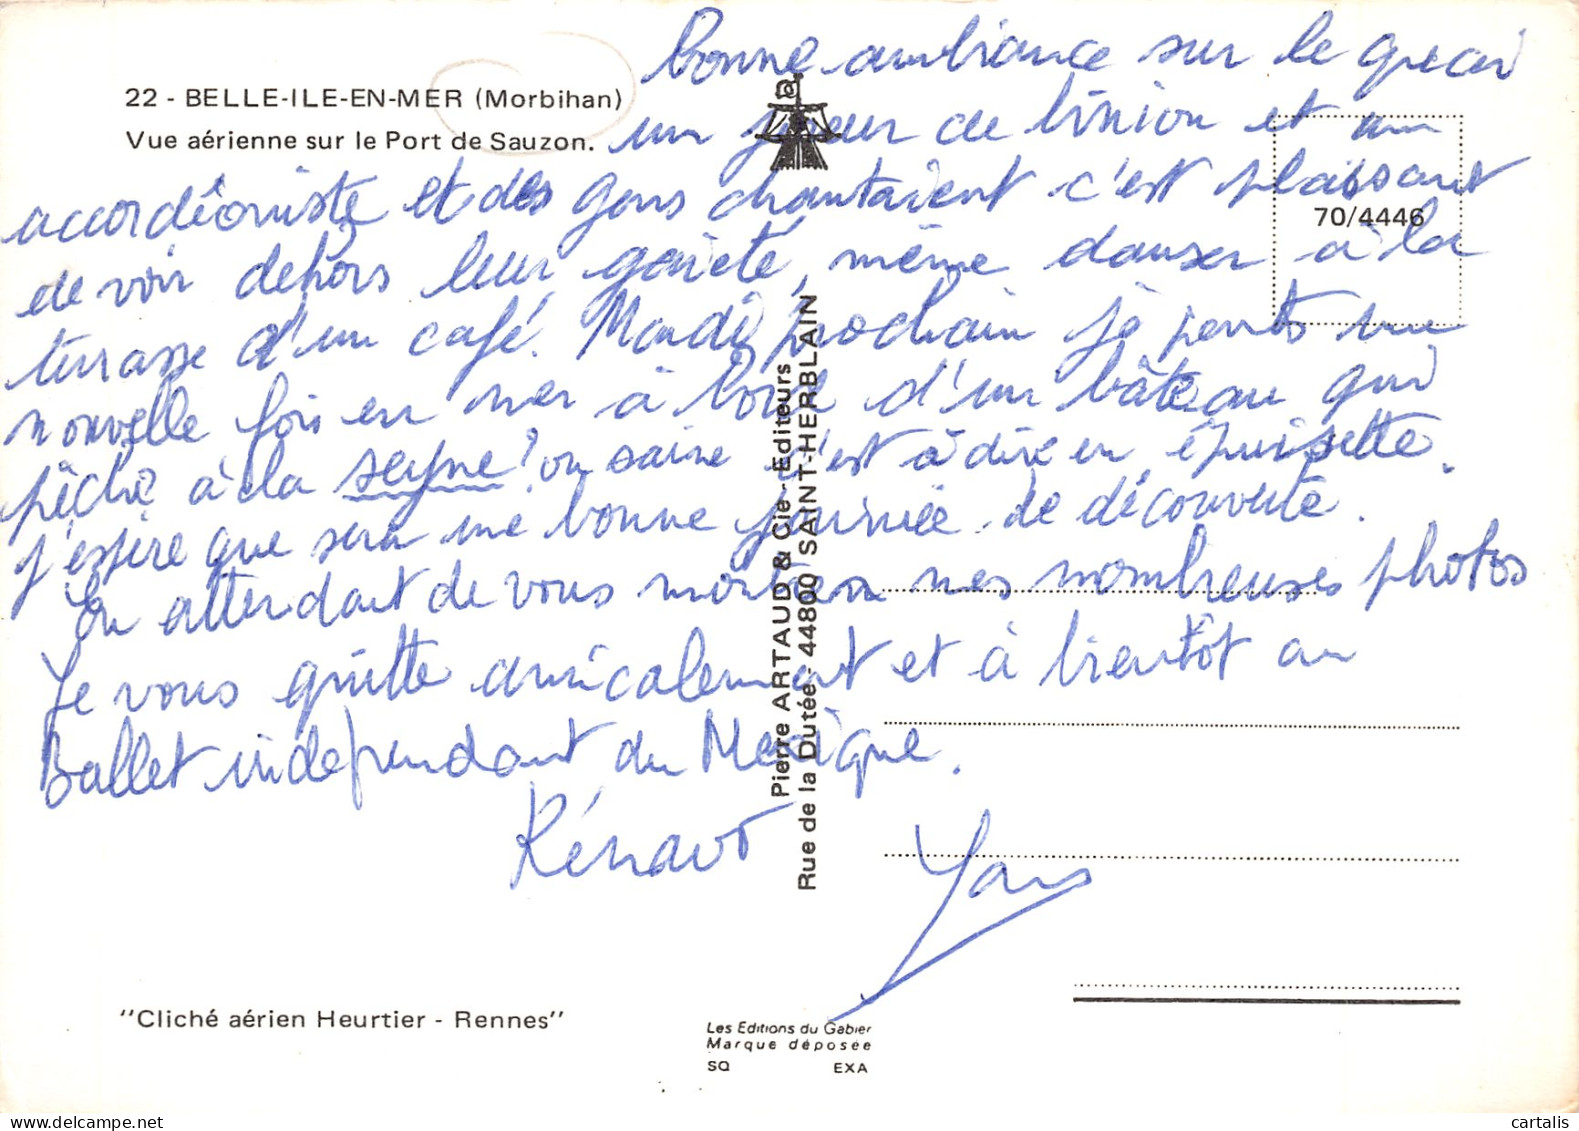 bonne ambiance sur le quai
22 - BELLE-ILE-EN-MER (Morbihan)
un joueur de biniou et un
Vue aérienne sur le Port de Sauzon.
accordéoniste et des gens chantaient c'est plaisant
70/4446
de voir dehors leur gaieté, même danser à la
terrasse d'un café. Mardi prochain je parts une
nouvelle fois en mer à bord d'un bâteau qui
pêche à la seyne? ou saine c'est à dire en épuisette.
j'espère que sera une bonne journée de découverte.
En attendant de vous montrer mes nombreuses photos
Je vous quitte amicalement et à bientôt au
Ballet indépendant du Mexique.
Pierre ARTAUD & Cie - Editeurs
Rue de la Dutée - 44800 SAINT-HERBLAIN
"Cliché aérien Heurtier - Rennes"
Les Editions du Gabier
Marque déposée
SQ EXA